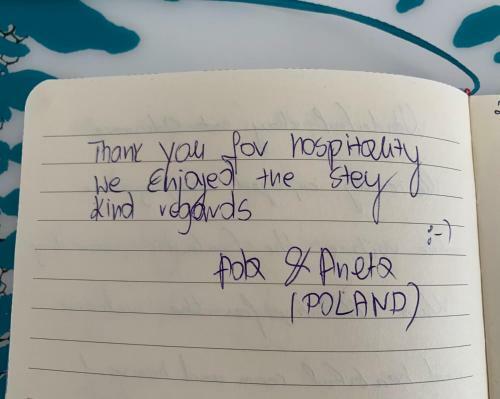 Thank you for hospitality
We enjoyed the stey
Kind regards
:-)
Ada & Aneta
(POLAND)